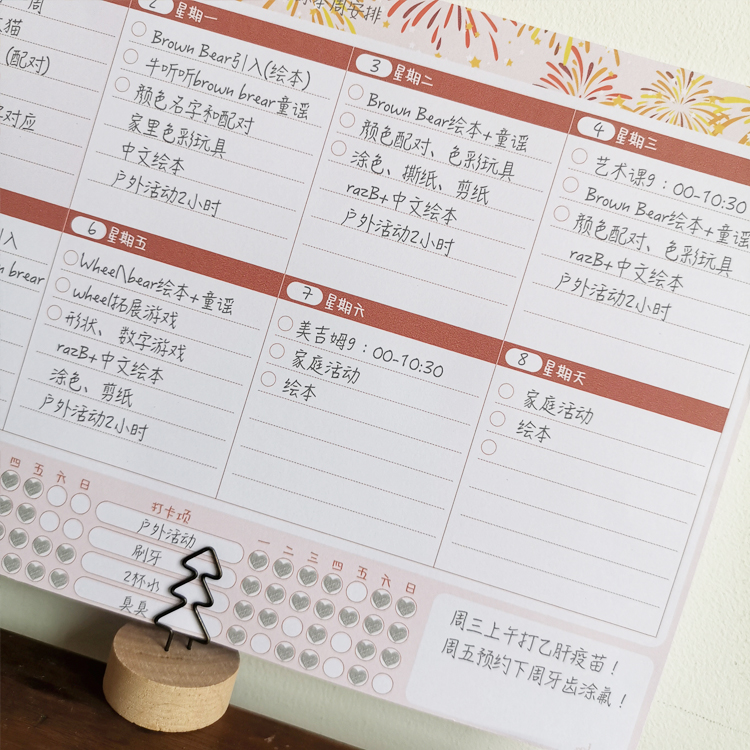 本周安排
周
猫
(配对)
对应
2 星期一
Brown Bear引入(绘本)
牛听听brown brear童谣
颜色名字和配对
家里色彩玩具
中文绘本
户外活动2小时
3 星期二
Brown Bear绘本+童谣
颜色配对、色彩玩具
涂色、撕纸、剪纸
razB+中文绘本
户外活动2小时
4 星期三
艺术课9：00-10:30
Brown Bear绘本+童谣
颜色配对、色彩玩具
razB+中文绘本
户外活动2小时
引入
brear
6 星期五
Wheel\bear绘本+童谣
wheel拓展游戏
形状、数字游戏
razB+中文绘本
涂色、剪纸
户外活动2小时
7 星期六
美吉姆9：00-10:30
家庭活动
绘本
8 星期天
家庭活动
绘本
四 五 六 日
打卡项
户外活动
刷牙
2杯水
臭臭
一 二 三 四 五 六 日
周三上午打乙肝疫苗！
周五预约下周牙齿涂氟！